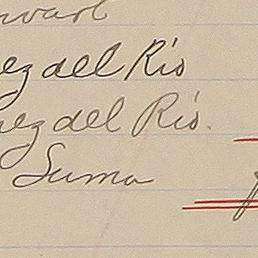 ez del Rio
ez del Rio.
Suma